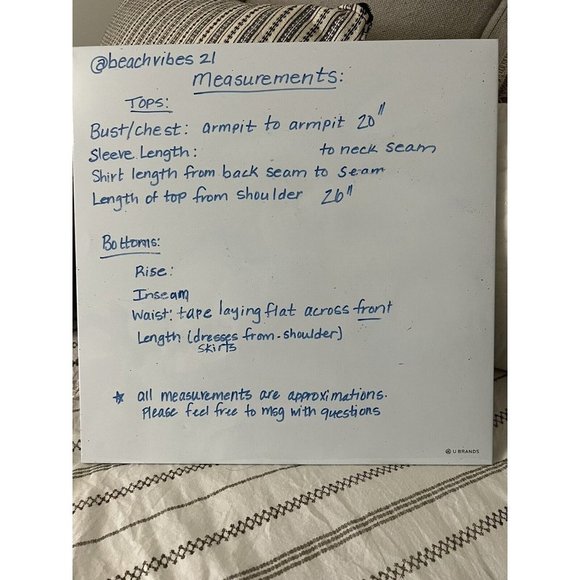 @beachvibes 21
Measurements:
Tops:
Bust/chest: armpit to armpit 20"
Sleeve Length: to neck seam
Shirt length from back seam to seam
Length of top from shoulder 26"
Bottoms:
Rise:
Inseam
Waist: tape laying flat across front
Length (dresses from shoulder)
skirts
* all measurements are approximations.
Please feel free to msg with questions
U BRANDS